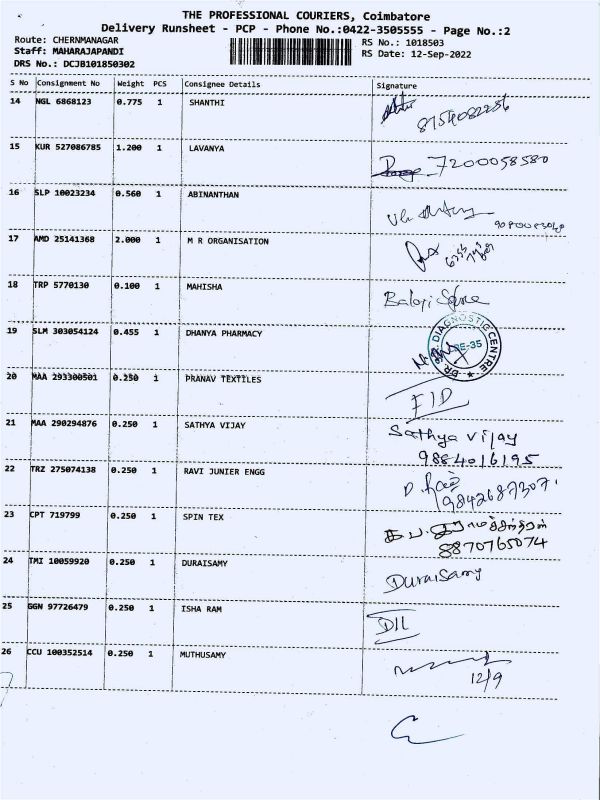 THE PROFESSIONAL COURIERS, Coimbatore
Delivery Runsheet - PCP - Phone No.:0422-3505555 - Page No.:2
Route: CHERNMANAGAR RS No.: 1018503
Staff: MAHARAJAPANDI RS Date: 12-Sep-2022
DRS No.: DCJB101850302
S No Consignment No Weight PCS Consignee Details Signature
14 NGL 6868123 0.775 1 SHANTHI
8754082256
15 KUR 527086785 1.200 1 LAVANYA
7200058580
16 SLP 10023234 0.560 1 ABINANTHAN
17 AMD 25141368 2.000 1 M R ORGANISATION
18 TRP 5770130 0.100 1 MAHISHA
Balaji
19 SLM 303054124 0.455 1 DHANYA PHARMACY
DIAGNOSTIC CENTRE
DR.
SE-35
20 MAA 293300501 0.250 1 PRANAV TEXTILES
FID
21 MAA 290294876 0.250 1 SATHYA VIJAY
Sathya vijay
9884016195
22 TRZ 275074138 0.250 1 RAVI JUNIER ENGG
9842687307.
23 CPT 719799 0.250 1 SPIN TEX
8870765074
24 TMI 10059920 0.250 1 DURAISAMY
Duraisamy
25 GGN 97726479 0.250 1 ISHA RAM
DIL
26 CCU 100352514 0.250 1 MUTHUSAMY
12/9